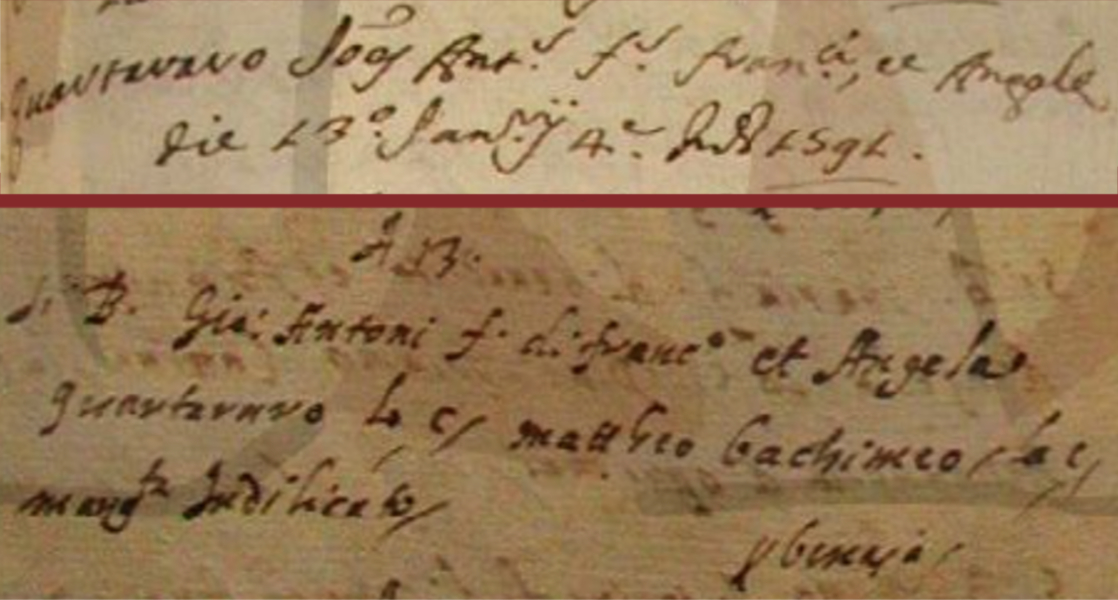 quartararo Joēs Ant.s f.s Fran.ci, et Angele
die 13.° Jan.rij 4.e Ind. 1591.
A 13.
B. Gio: Antoni f. di franc.° et Angela
quartararo lo c/ mattheo bachimeo, la c/
marg.ta Indilicato/